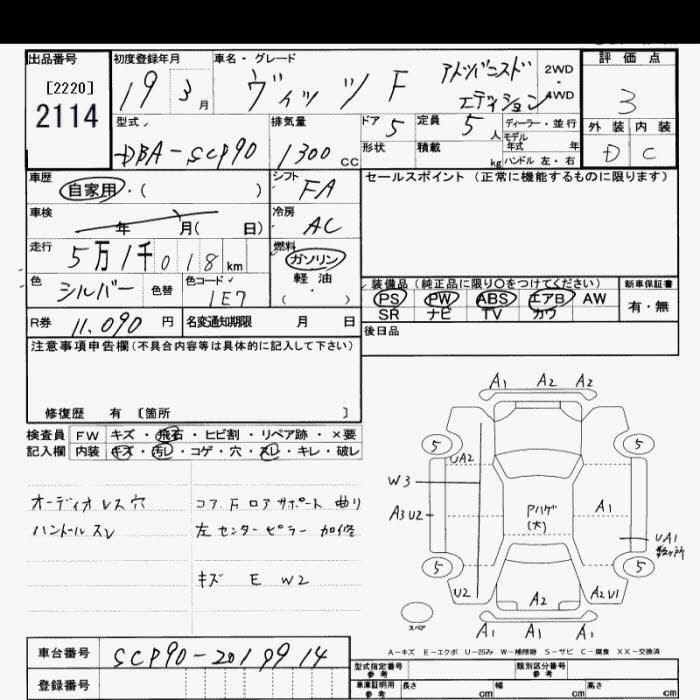 出品番号 初度登録年月 車名・グレード 評価点
[2220]
2114
19 3月 ヴィッツ F アドバンスド エディション 2WD 4WD 3
型式 排気量 ドア 5 定員 5人 ディーラー・並行 外装 内装
モデル年式 年
DBA-SCP90 1300cc 形状 積載 kg ハンドル 左・右 D C
車歴 自家用・( ) シフト FA セールスポイント (正常に機能するものに限ります)
車検 年 月( 日) 冷房 AC
走行 5万1千018km 燃料 ガソリン
軽油
・
( )
色 シルバー 色替 色コード 1E7
装備品 (純正品に限り○をつけてください) 新車保証書
PS PW ABS エアB AW 有・無
SR ナビ TV カワ
R券 11,090円 名変通知期限 月 日 後日品
注意事項申告欄(不具合内容等は具体的に記入して下さい)
修復歴 有 [箇所 ]
検査員 FW キズ・飛石・ヒビ割・リペア跡・×要
記入欄 内装 キズ・汚レ・コゲ・穴・スレ・キレ・破レ
オーディオレス穴 コアサポート 曲り
ハンドルスレ 左センターピラー 加修
キズ E W2
A1 A2 A2
5 5
UA2
W3
A3U2 Pハゲ(大) A1
UA1 数ヶ所
5 5
U2 A2 A2U1
スペア A1 A1 A1
A-キズ E-エクボ U-凹み W-補修跡 S-サビ C-腐食 XX-交換済
車台番号 SCP90-2019914
型式指定番号 参考 類別区分番号 参考
登録番号 車庫証明用 参考 長さ cm 幅 cm 高さ cm